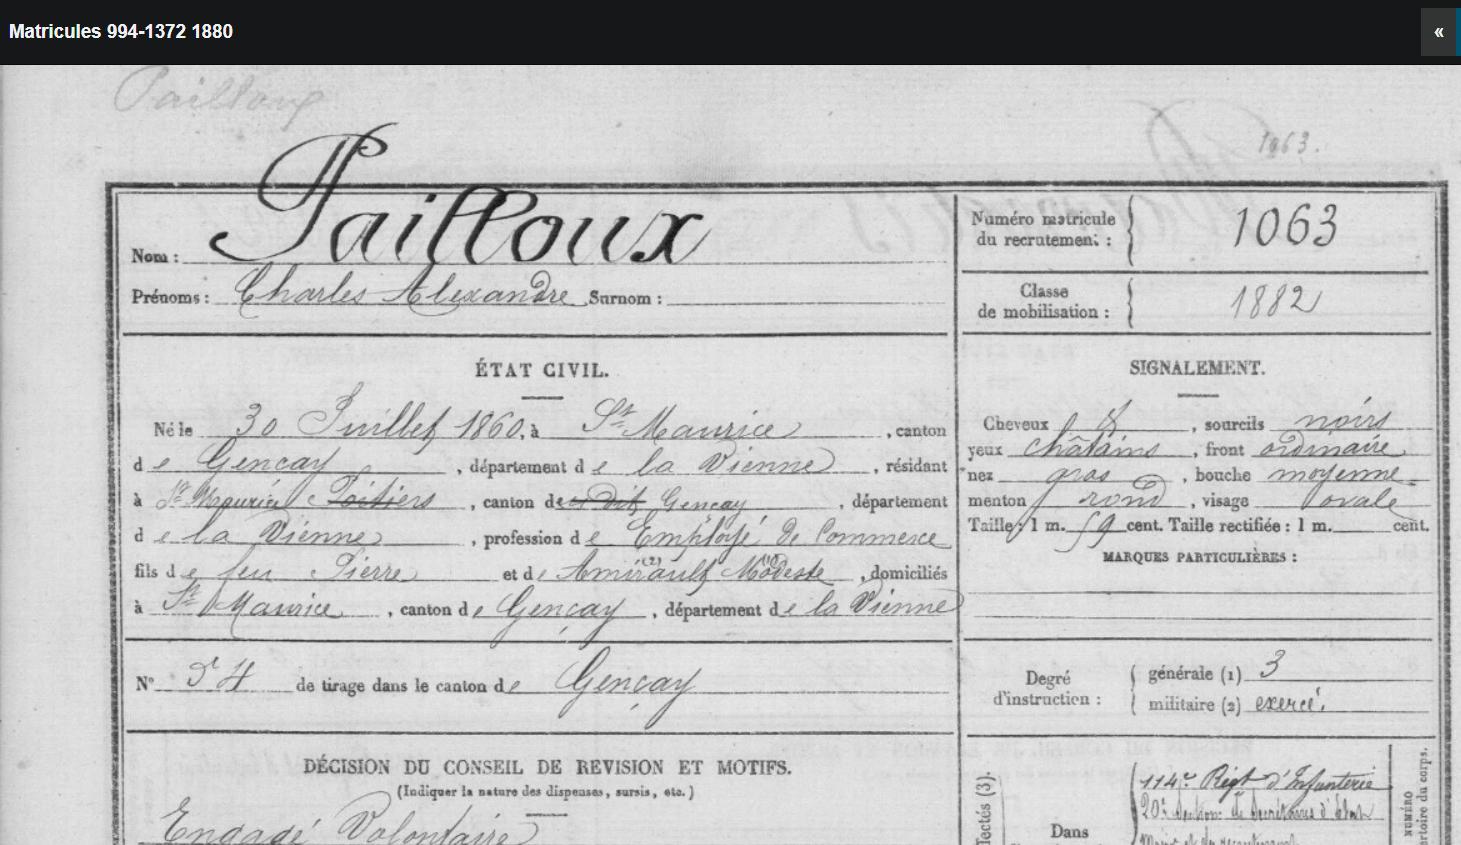 Matricules 994-1372 1880
«
Pailloux
1063.
Pailloux
Nom :
Prénoms : Charles Alexandre Surnom :
Numéro matricule
du recrutement : 1063
Classe
de mobilisation : 1882
ÉTAT CIVIL.
Né le 30 Juillet 1860, à St Maurice, canton
de Gençay, département de la Vienne, résidant
à St Maurice Poitiers, canton de dit Gençay, département
de la Vienne, profession de Employé de Commerce
fils de feu Pierre et de Amirault (2) Modeste (1), domiciliés
à St Maurice, canton de Gençay, département de la Vienne
SIGNALEMENT.
Cheveux &, sourcils noirs
yeux châtains, front ordinaire
nez gros, bouche moyenne
menton rond, visage ovale
Taille : 1 m. 59 cent. Taille rectifiée : 1 m. cent.
MARQUES PARTICULIÈRES :
N° 54 de tirage dans le canton de Gençay
Degré
d'instruction :
générale (1) 3
militaire (2) exercé.
DÉCISION DU CONSEIL DE REVISION ET MOTIFS.
(Indiquer la nature des dispenses, sursis, etc.)
Engagé Volontaire
lectés (3).
Dans
114e Régt d'Infanterie
20e Section de Secrétaires d'Etat
NUMÉRO
répertoire du corps.